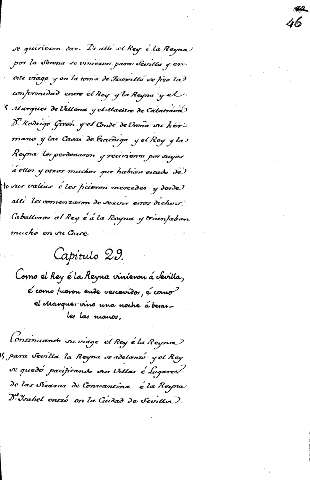 46
se quisieron dar. De alli el Rey é la Reyna
por la Serena se vinieron para Sevilla y en
este viage y en la toma de Truxillo se fizo la
conformidad entre el Rey y la Reyna y el
5 Marques de Villena y el Maestre de Calatrava
Dn. Rodrigo Giron y el Conde de Ureña su her-
mano y las Casas de y el Rey y la
Reyna los perdonaron y recivieron por suyos
á ellos y otros muchos que habian estado de
10 sus valias é les ficieron mercedes y donde
alli los comenzaron de servir estos dichos
Caballeros al Rey é á la Reyna y
mucho en su Casa.
Capitulo 29.
Como el Rey é la Reyna vinieron á Sevilla,
é como fueron ende recevidos, é como
el Marques vino una noche á besar-
les las manos.
Continuando su viage el Rey é la Reyna
15 para Sevilla la Reyna se adelantó y el Rey
se quedó pacificando sus Villas é Lugares
de las Sierras de Constantina é la Reyna
Dª. Isabel entró en la Ciudad de Sevilla